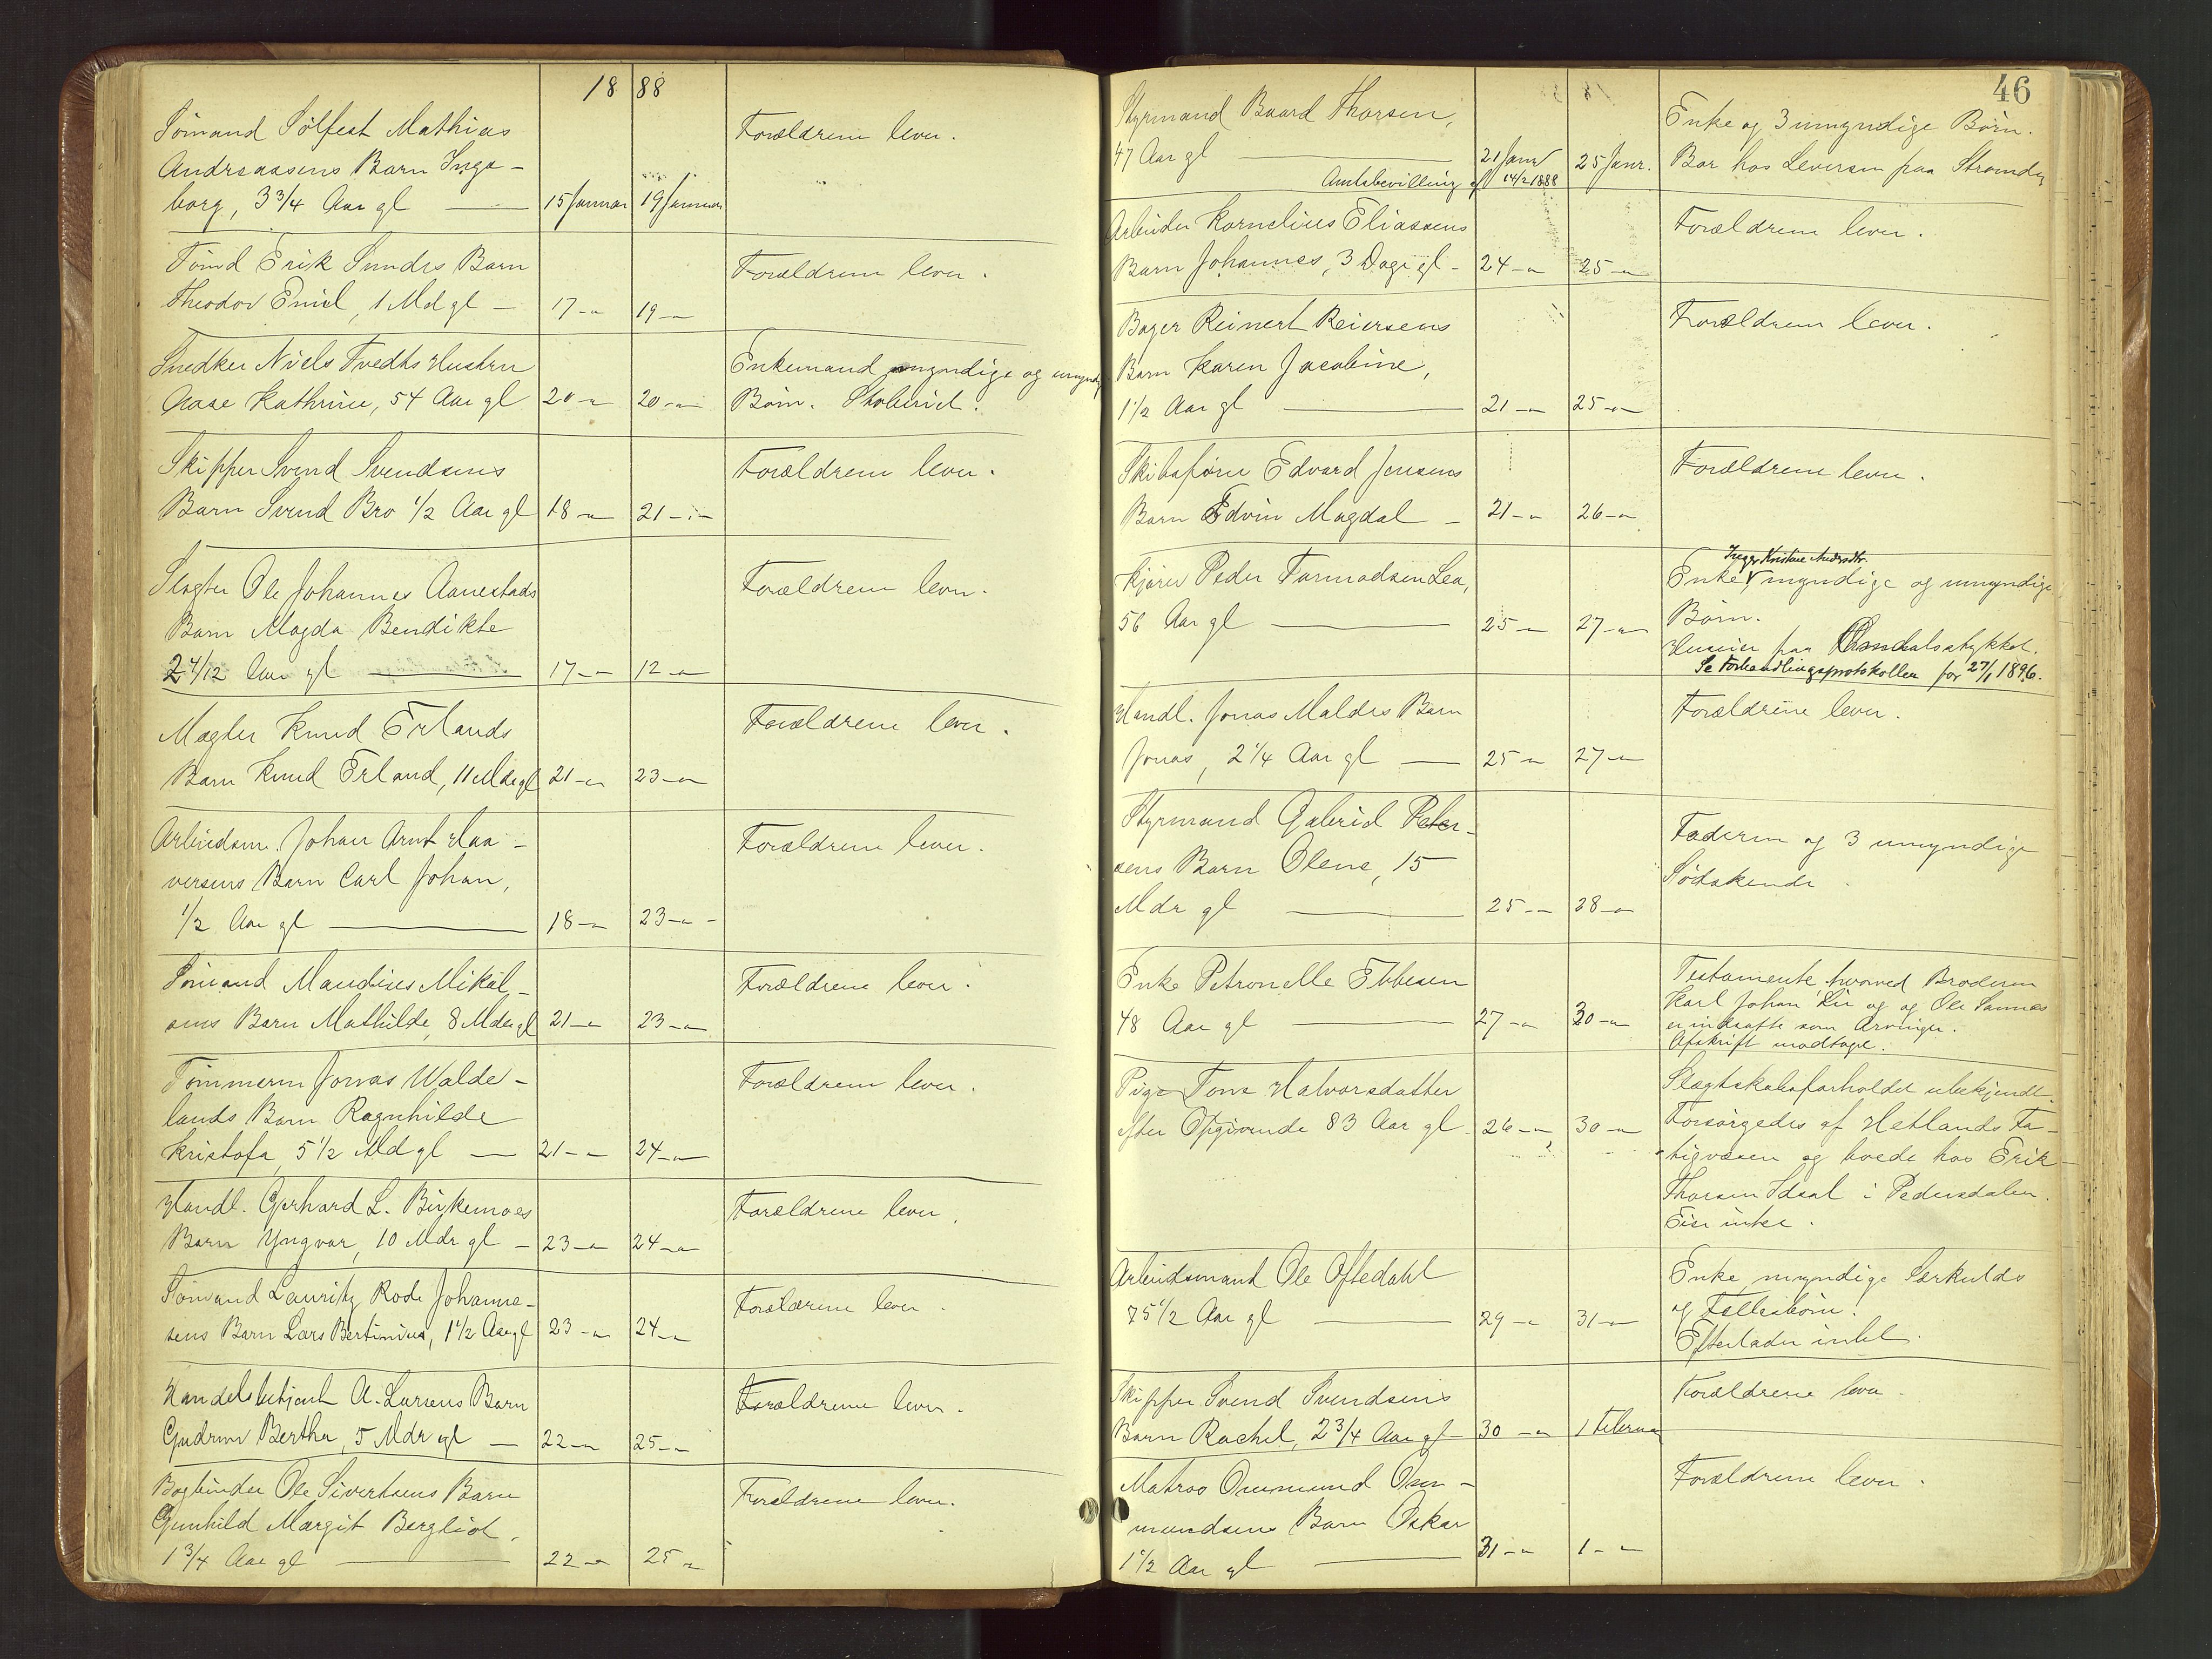 18 88
Sömand Sölfest Mathias
Andreassens Barn Inga-
borg, 3 3/4 Aar gl — 15 Januar 19 Januar
Forældrene lever.
Sömd Erik Sundes Barn
Theodor Emil, 1 Md gl — 17 — 19 —
Forældrene lever.
Snedker Niels Tvedts Hustru
Aase Kathrine, 54 Aar gl 20 — 20 —
Enkemand myndige og umyndige
Börn.
Skipper Svend Svendsens
Barn Svend Bro 1/2 Aar gl 18 — 21 —
Forældrene lever.
Slagter Ole Johannes Aanestads
Barn Magda Bendikte
2 4/12 Aar gl — 17 — 12 —
Forældrene lever.
Mægler Knud Erlands
Barn Knud Erland, 11 Mdr gl 21 — 23 —
Forældrene lever.
Arbeidsm. Johan Arnt Haa-
versens Barn Carl Johan,
1/2 Aar gl — 18 — 23 —
Forældrene lever.
Sömand Maudius Mikal-
sens Barn Mathilde, 8 Mdr gl 21 — 23 —
Forældrene lever.
Tömmerm Jonas Walde-
lands Barn Ragnhilde
Kristofa, 5 1/2 Md gl — 21 — 24 —
Forældrene lever.
Handl. Gerhard L. Birkemoes
Barn Yngvar, 10 Mdr gl — 23 — 24 —
Forældrene lever.
Sömand Lauritz Rode Johanne-
sens Barn Lars Bertinius, 1 1/2 Aar gl 23 — 24 —
Forælderne lever.
Handelsbetjent A. Larsens Barn
Gudrun Bertha, 5 Mdr gl — 22 — 25 —
Forældrene lever.
Bogbinder Ole Sivertsens Barn
Gunhild Margit Bergliot,
1 3/4 Aar gl — 22 — 25 —
Forældrene lever.
46
Styrmand Baard Thorsen,
47 Aar gl — 21 Janr 25 Janr.
Amtsbevilling af 14/2 1888
Enke og 3 umyndige Börn.
Bor hos Leversen paa
Arbeider Kornelius Eliassens
Barn Johannes, 3 Dage gl — 24 — 25 —
Forældrene lever.
Bager Reinert Reiersens
Barn Karen Jacobine,
1 1/2 Aar gl — 21 — 25 —
Forældrene lever.
Skibsförer Edvard Jensens
Barn Edvin Magdal — 21 — 26 —
Forældrene lever.
Kjörer Peder Tormodsen Lea,
56 Aar gl — 25 — 27 —
Inger Kristine Andrsdtr.
Enke myndige og umyndige
Börn.
Huseier paa
Se Forhandlingsprotokollen for 27/1 1896.
Handl. Jonas Maldes Barn
Jonas, 2 1/4 Aar gl — 25 — 27 —
Forældrene lever.
Styrmand Gabriel Peter-
sens Barn Olene, 15
Mdr gl — 25 — 28 —
Faderen og 3 umyndige
Södskende
Enke Petronelle Ebbesen
48 Aar gl — 27 — 30 —
Testamente hvorved Broderen
Karl Johan Lie og og Ole Sannes
er indsatte som Arvinger.
Afskrift modtaget.
Pige Tone Halvorsdatter
efter Opgivende 83 Aar gl 26 — 30 —
Slægtskabsforholdet ubekjendt.
Forsörgedes af Hetlands Fa-
tigvæsen og boede hos Erik
Thorsen Idsal i Pedersdalen.
Eier intet.
Arbeidsmand Ole Oftedahl
75 1/2 Aar gl — 29 — 31 —
Enke myndige Særkulds
og Fællesbörn.
Efterlader intet.
Skipper Svend Svendsens
Barn Rachel, 2 3/4 Aar gl — 30 — 1 Februar
Forældrene lever.
Matros Ommund Om-
mundsens Barn Oskar
1 1/2 Aar gl — 31 — 1 —
Forældrene lever.